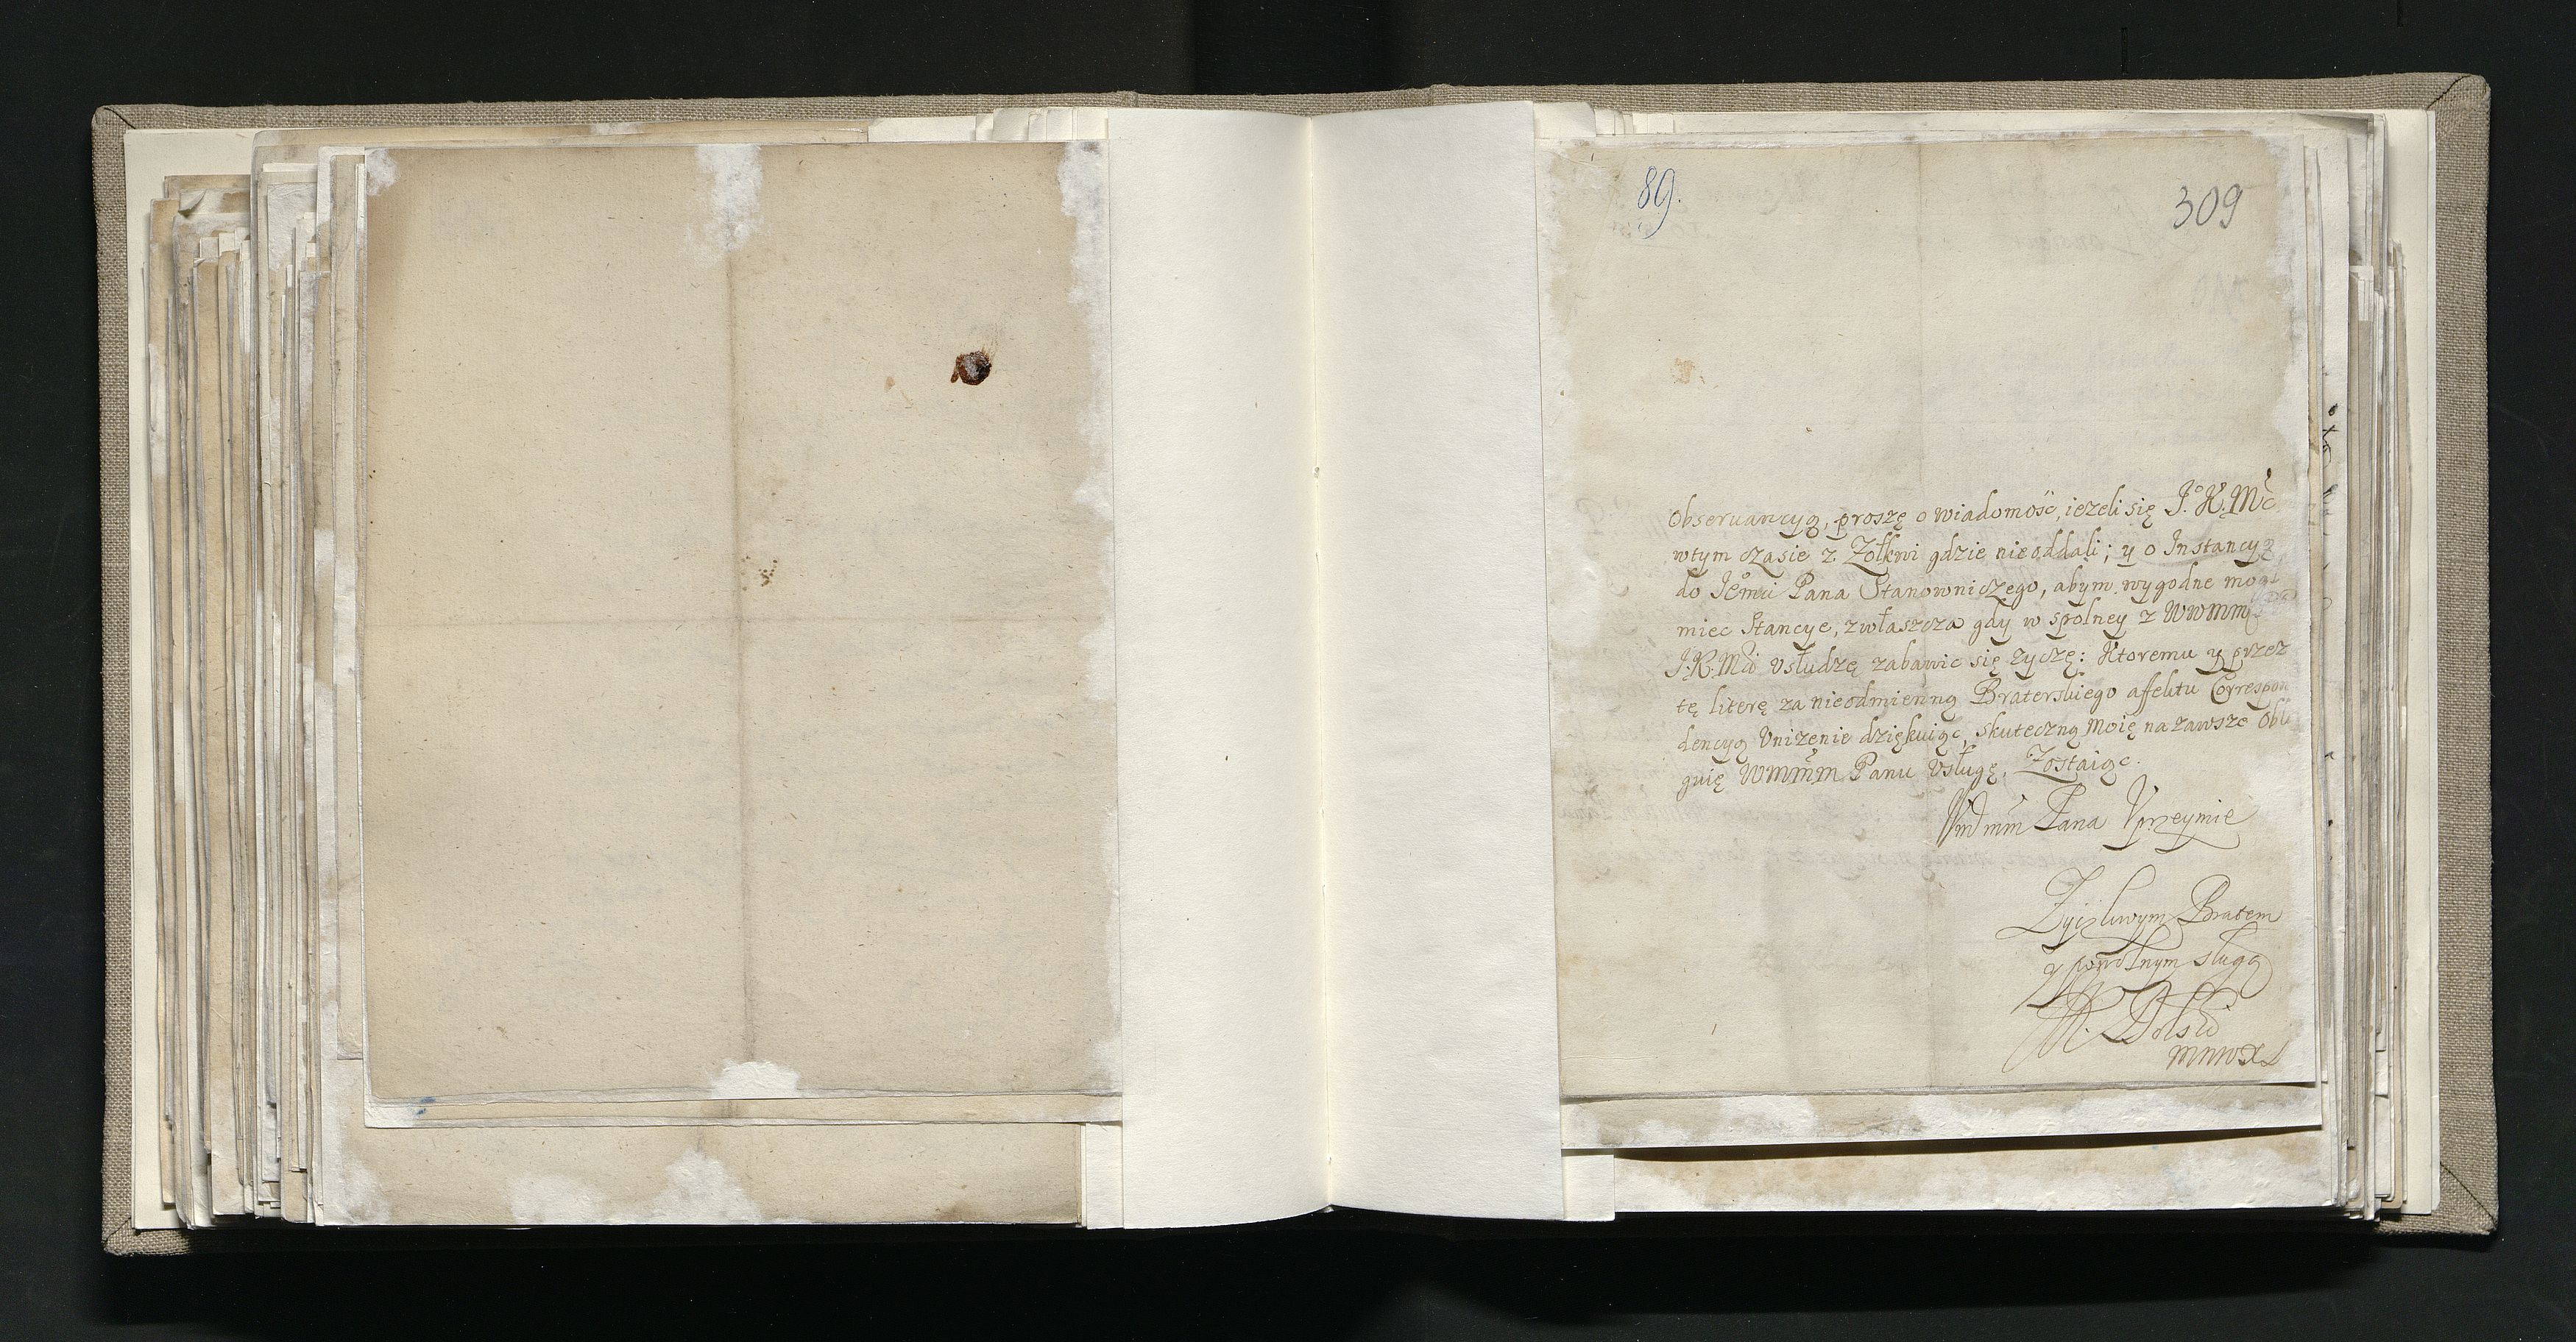 89.
309
Obseruancyą, proszę o wiadomość, iezeli się J.º K. Mć
wtym czasie z Zołkwi gdzie nieoddali; y o Instancyą
do Jemci Pana Stanowniczego, abym wygodne mogl
miec Stancye, zwłaszcza gdy w spolney z WMM
J. K. Mci Vsłudze zabawic się zyczę: Ktoremu y przez
tę literę za nieodmienną Braterskiego affektu Correspon
dencyą Vnizenie dziękuiąc, skuteczną moię nazawsze Obli
guię WMMM Panu Vsługę, Zostaiąc.
Wm mm Pana Vprzeymie
Zyczliwym Bratem
y powolnym sługą
Dolski
MNWXL